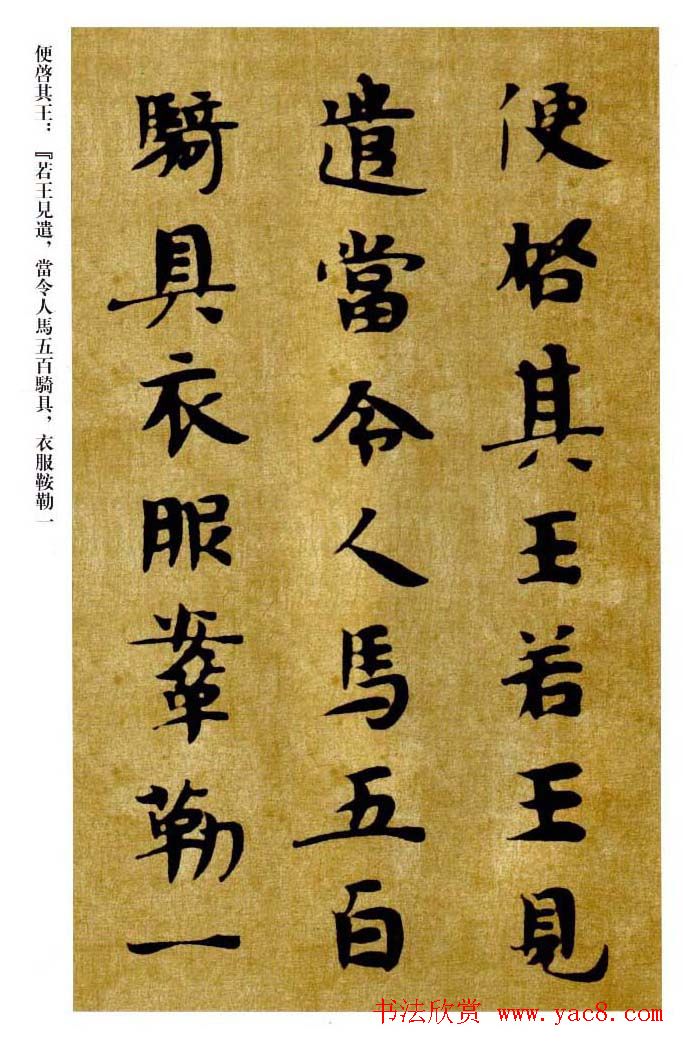 便啓其王若王見
遣當令人馬五百
騎具衣服鞌勒一
便啓其王：『若王見遣，當令人馬五百騎具，衣服鞍勒一
书法欣赏 www.yac8.com